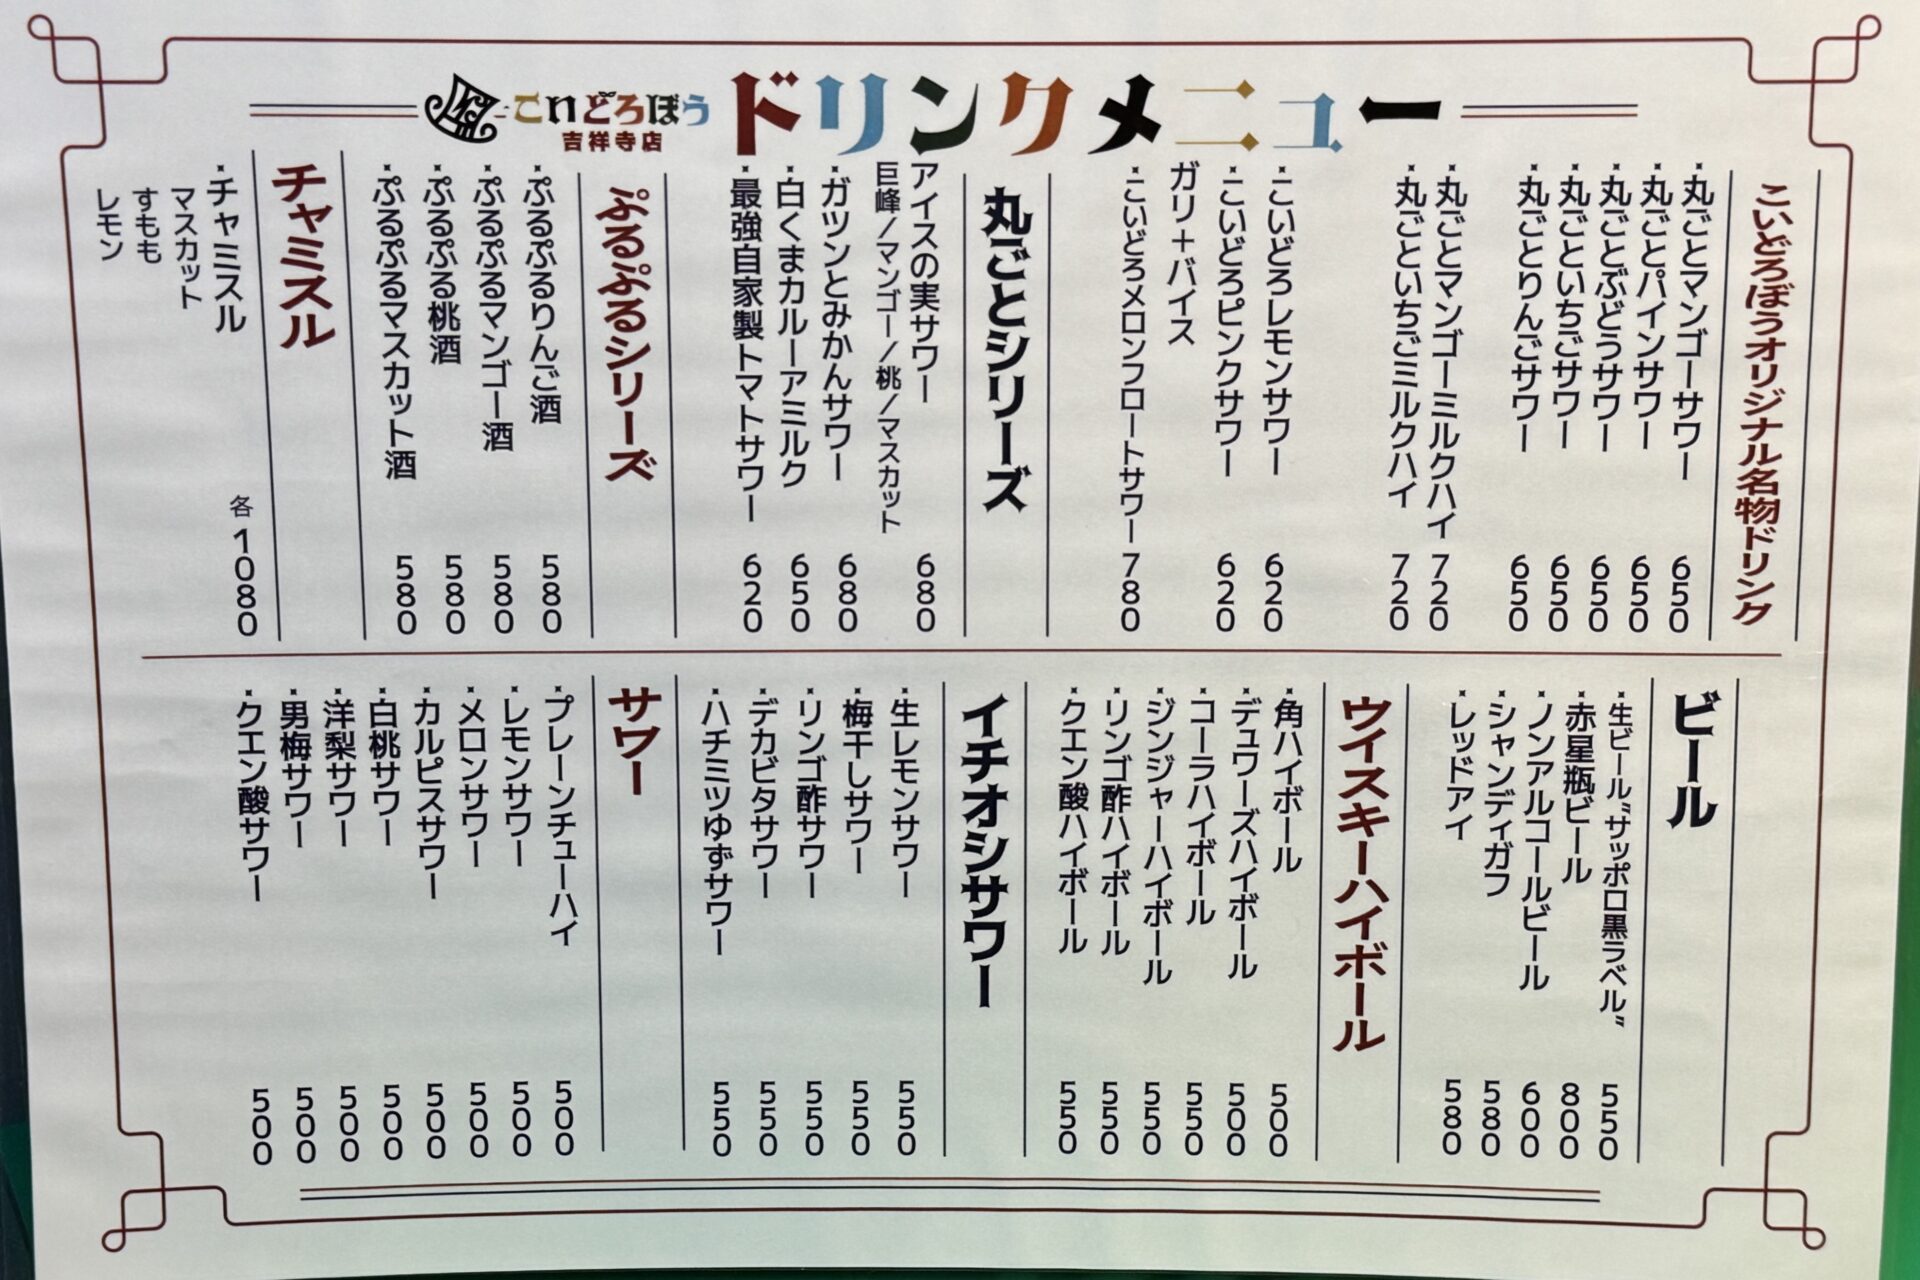 こいどろぼう
吉祥寺店
ドリンクメニュー
こいどろぼうオリジナル名物ドリンク
・丸ごとマンゴーサワー 650
・丸ごとパインサワー 650
・丸ごとぶどうサワー 650
・丸ごといちごサワー 650
・丸ごとりんごサワー 650
・丸ごとマンゴーミルクハイ 720
・丸ごといちごミルクハイ 720
・こいどろレモンサワー 620
・こいどろピンクサワー 620
ガリ+バイス
・こいどろメロンフロートサワー 780
丸ごとシリーズ
アイスの実サワー 680
巨峰/マンゴー/桃/マスカット
・ガツンとみかんサワー 680
・白くまカルーアミルク 650
・最強自家製トマトサワー 620
ぷるぷるシリーズ
・ぷるぷるりんご酒 580
・ぷるぷるマンゴー酒 580
・ぷるぷる桃酒 580
・ぷるぷるマスカット酒 580
チャミスル
・チャミスル 各1080
マスカット
すもも
レモン
ビール
・生ビール"サッポロ黒ラベル" 550
・赤星瓶ビール 800
・ノンアルコールビール 600
・シャンディガフ 580
・レッドアイ 580
ウイスキーハイボール
・角ハイボール 500
・デュワーズハイボール 500
・コーラハイボール 550
・ジンジャーハイボール 550
・リンゴ酢ハイボール 550
・クエン酸ハイボール 550
イチオシサワー
・生レモンサワー 550
・梅干しサワー 550
・リンゴ酢サワー 550
・デカビタサワー 550
・ハチミツゆずサワー 550
サワー
・プレーンチューハイ 500
・レモンサワー 500
・メロンサワー 500
・カルピスサワー 500
・白桃サワー 500
・洋梨サワー 500
・男梅サワー 500
・クエン酸サワー 500